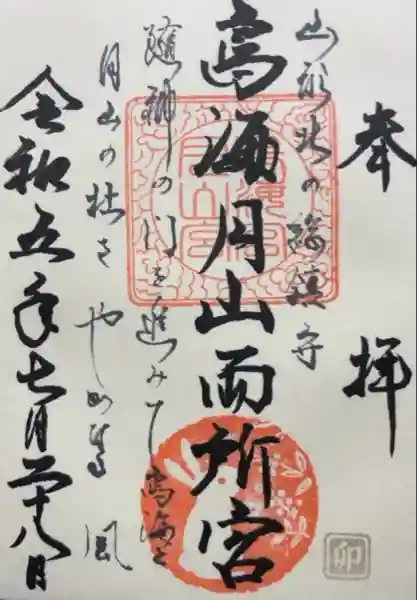 奉拝
山形北の総鎮守
鳥海月山両所宮
随神の門を進みて鳥海と
月山の杜さ 風
令和五年七月二十八日
卯